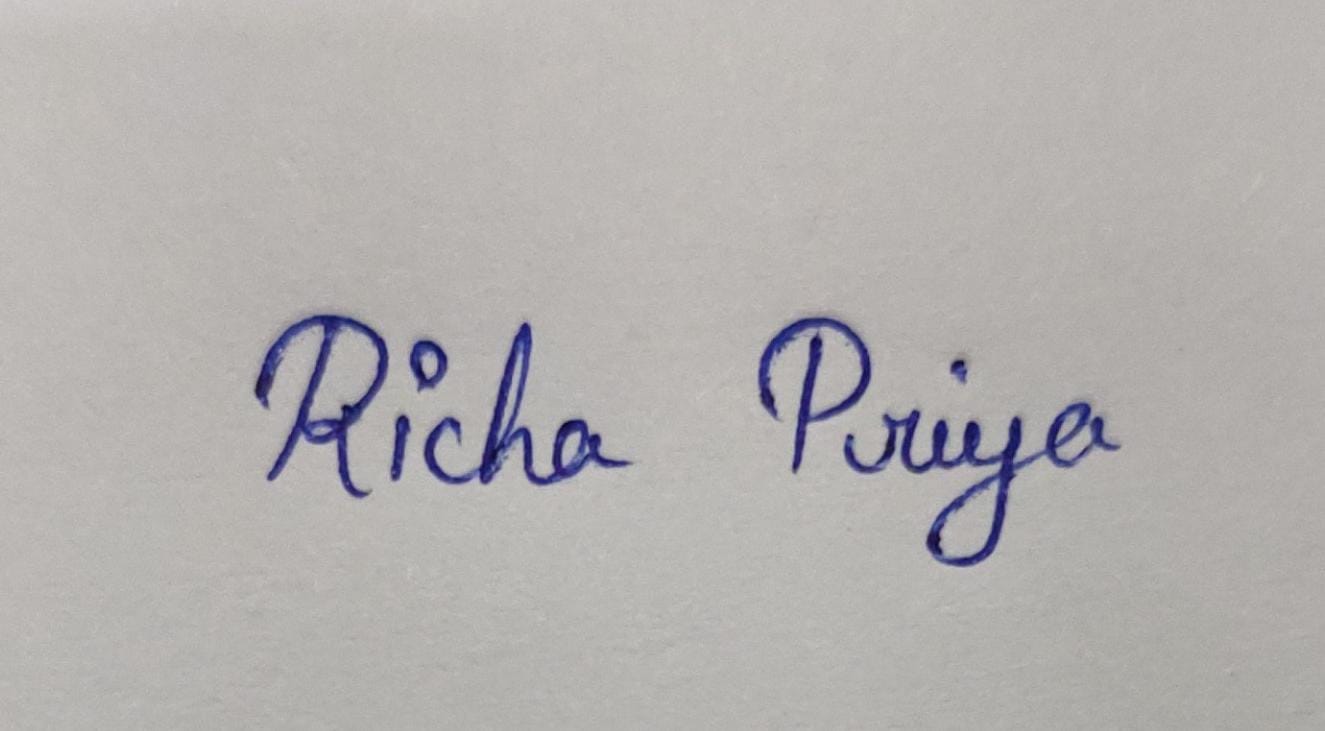 Richa Priya